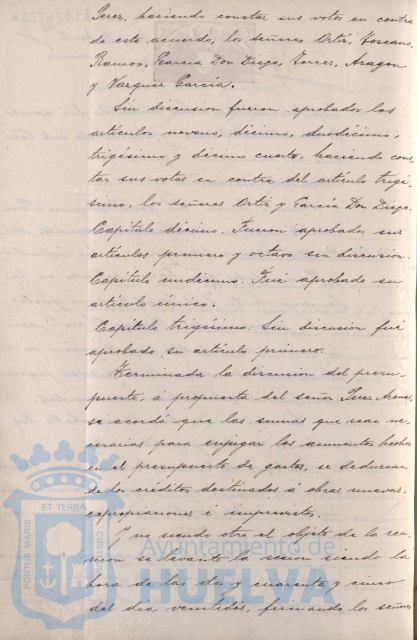 Perez, haciendo constar sus votos en contra
de este acuerdo, los señores Ortiz, Toscano,
Ramos, Garcia Don Diego, Torres, Aragon
y Vazquez Garcia.
Sin discusion fueron aprobados los
articulos noveno, décimo, duodécimo,
trigésimo y décimo cuarto, haciendo cons-
tar sus votos en contra del artículo trigé-
simo, los señores Ortiz y Garcia Don Diego.
Capítulo décimo. Fueron aprobados sus
artículos primero y octavo sin discusion.
Capítulo undécimo. Fué aprobado su
artículo único.
Capítulo trigésimo. Sin discusion fué
aprobado su artículo primero.
Terminada la discusion del presu-
puesto, á propuesta del señor Perez
se acordó que las sumas que sean ne-
cesarias para enjugar los aumentos hechos
en el presupuesto de gastos, se deduzcan
de los créditos destinados á obras nuevas,
expropiaciones é imprevistos.
Y no siendo otro el objeto de la reu-
nion se levantó la sesion siendo la
hora de las dos y cuarenta y cinco
del dia veintidos, firmando los seño
PORTUS MARIS
ET TERRA
CUSTODIA
Ayuntamiento de
HUELVA